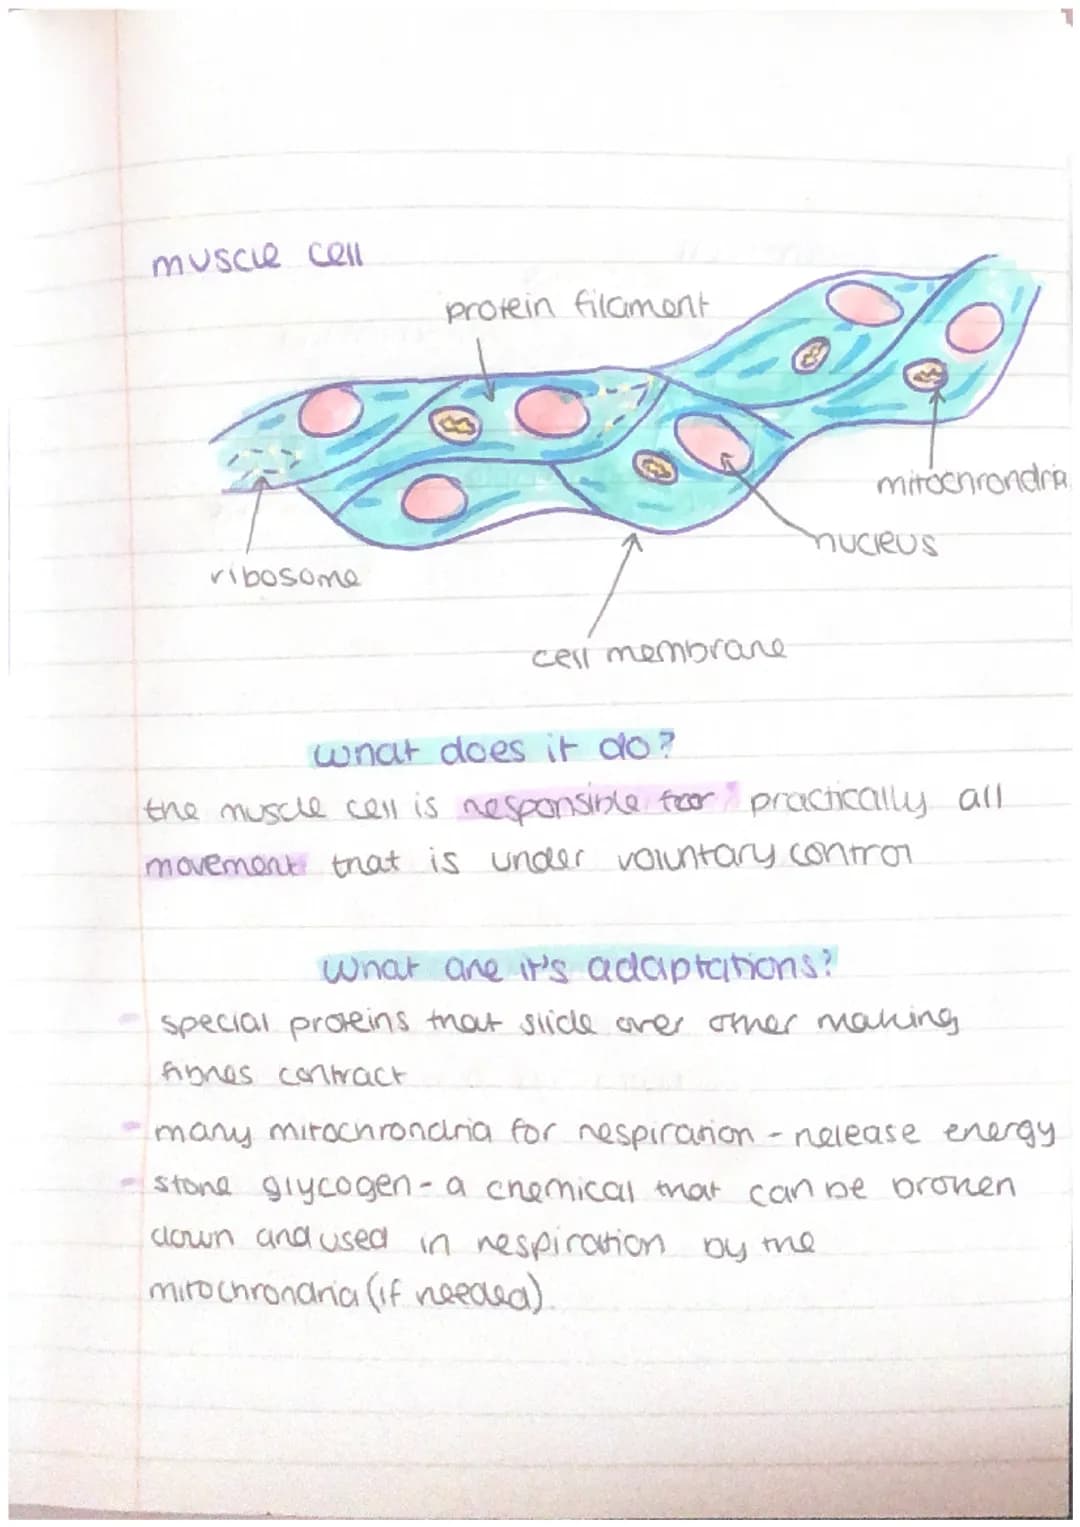 muscle cell
protein filament
mitochrondria
nucleus
ribosome
cell membrane
what does it do?
the muscle cell is responsible for practically all
movement that is under voluntary control
what are it's adaptations?
special proteins that slide over other making
fibres contract
- many mitochrondria for respiration - release energy
- store glycogen - a chemical that can be broken
down and used in respiration by the
mitochrondria (if needed).